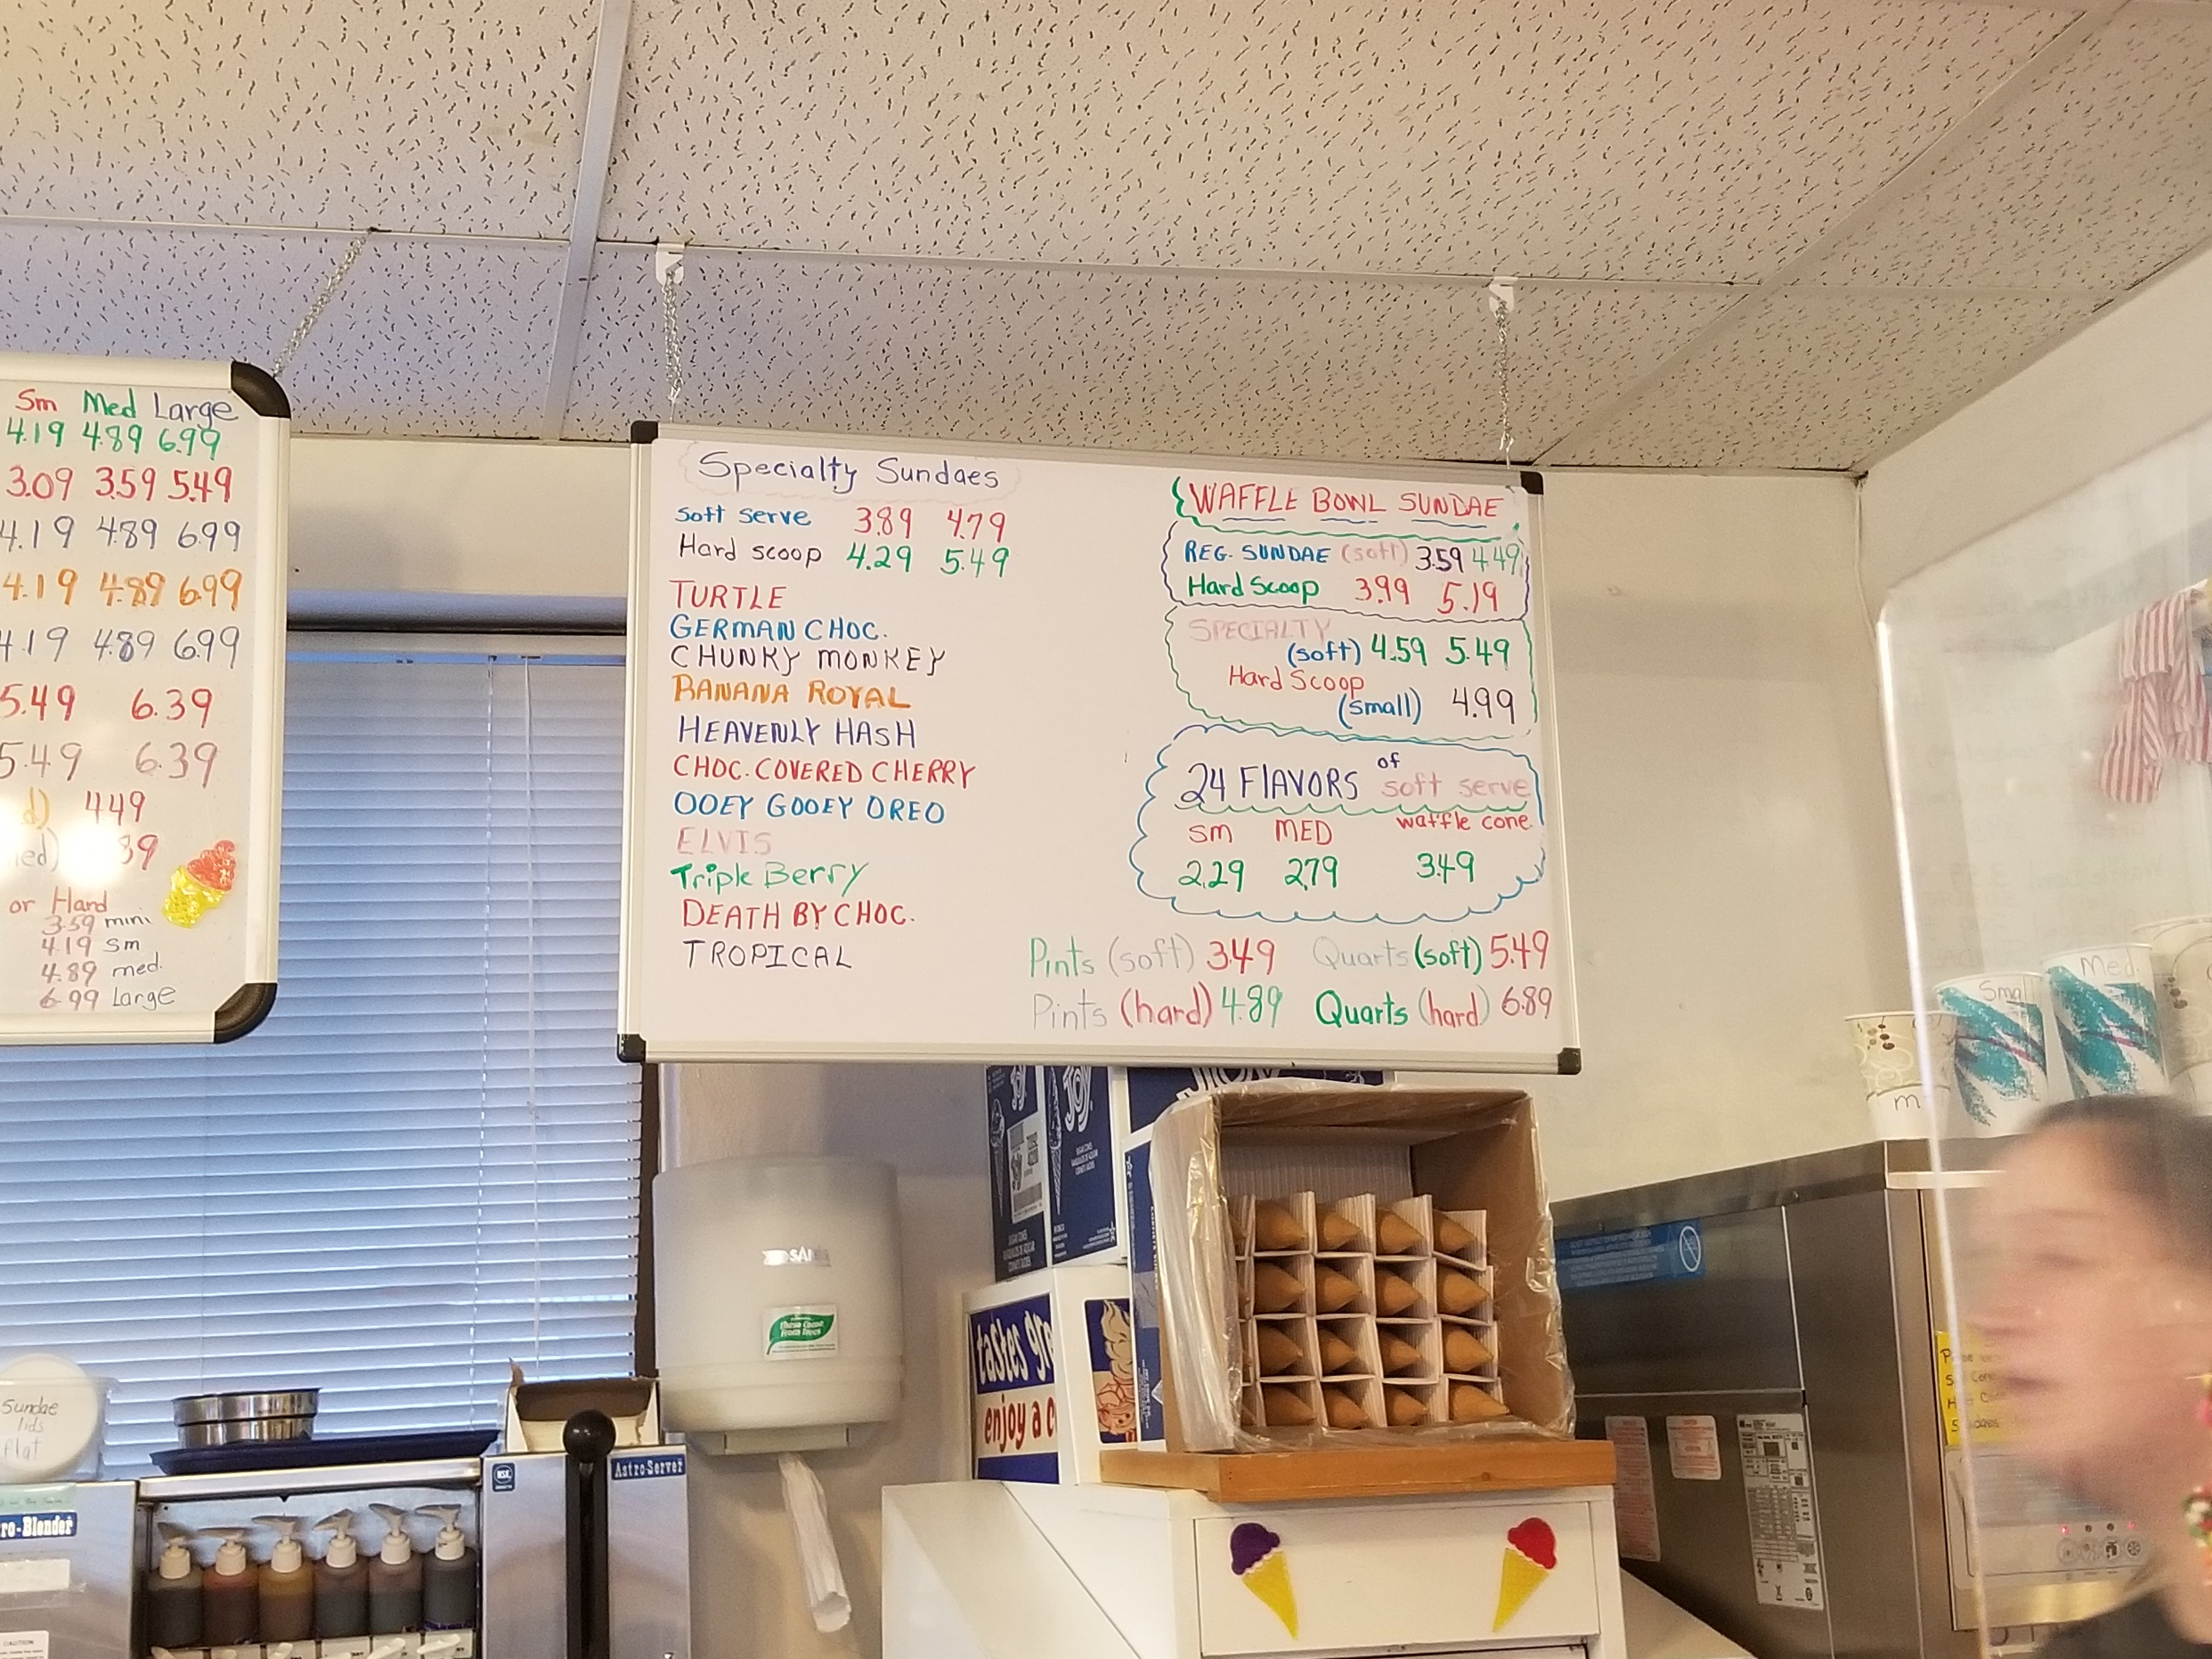 Sm Med Large
4.19 4.89 6.99
3.09 3.59 5.49
4.19 4.89 6.99
4.19 4.89 6.99
4.19 4.89 6.99
5.49 6.39
5.49 6.39
4.49
or Hand
3.59 mini
4.19 sm
4.89 med.
6.99 Large
Specialty Sundaes
soft serve 3.89 4.79
Hard scoop 4.29 5.49
TURTLE
GERMAN CHOC.
CHUNKY MONKEY
BANANA ROYAL
HEAVENLY HASH
CHOC. COVERED CHERRY
OOEY GOOEY OREO
ELVIS
Triple Berry
DEATH BY CHOC.
TROPICAL
WAFFLE BOWL SUNDAE
REG. SUNDAE (soft) 3.59 4.49
Hard Scoop 3.99 5.19
SPECIALTY
(soft) 4.59 5.49
Hard Scoop
(small) 4.99
24 FLAVORS of soft serve
sm MED waffle cone
2.29 2.79 3.49
Pints (soft) 3.49 Quarts (soft) 5.49
Pints (hard) 4.89 Quarts (hard) 6.89
Small
Med.
m
JOY
JOY
SAN
These Come
From Trees
tastes gre
enjoy a c
Sundae
lids
flat
Astro-Server
ro-Blender
CAUTION